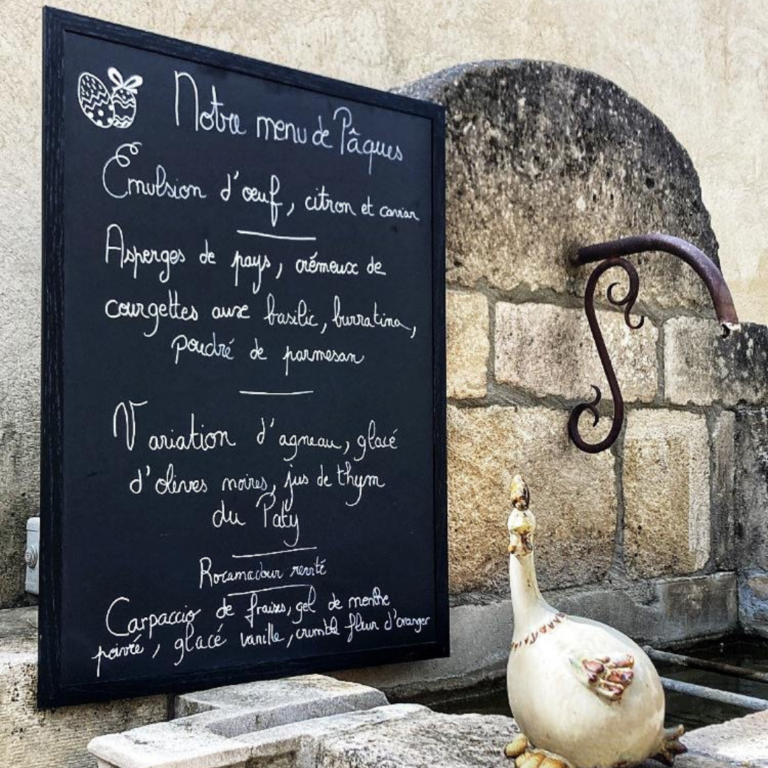 Notre menu de Pâques
Emulsion d'œuf, citron et caviar
Asperges de pays, crémeux de
courgettes aux basilic, burratina,
poudré de parmesan
Variation d'agneau, glacé
d'olives noires, jus de thym
du Paty
Rocamadour revisité
Carpaccio de fraises, gel de menthe
poivré, glacé vanille, crumble fleur d'oranger